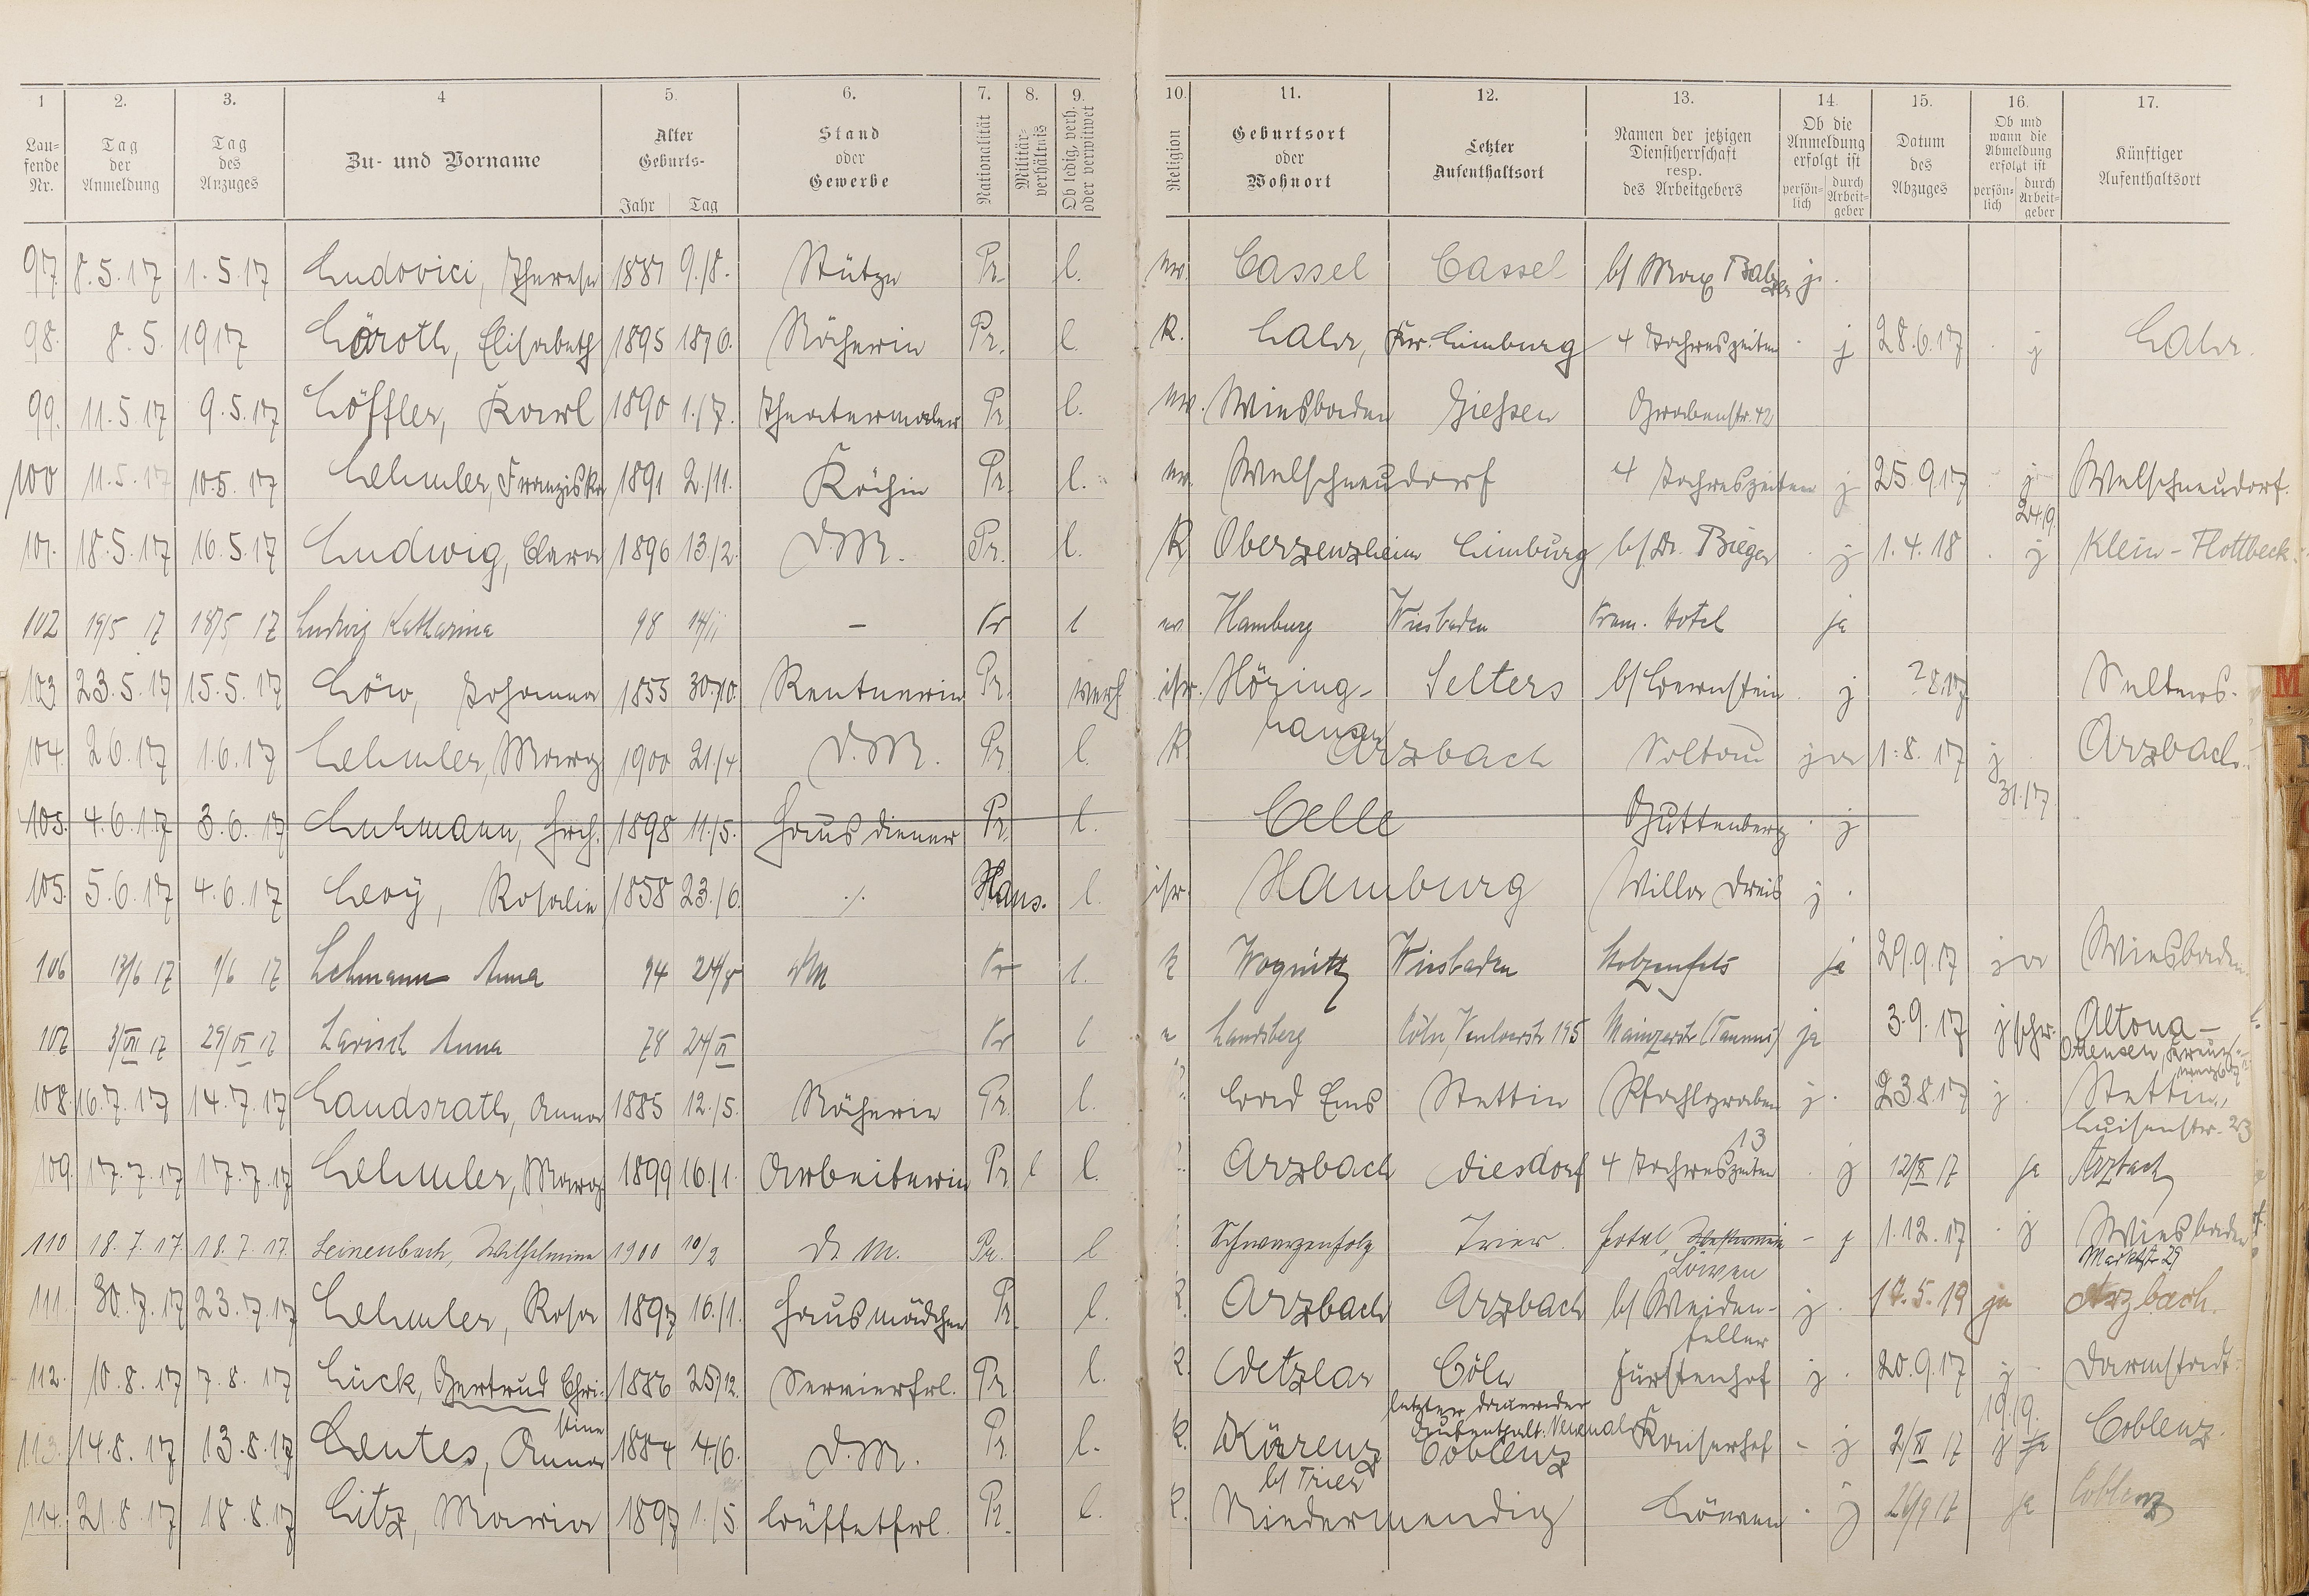 1 2. 3. 4 5. 6. 7. 8. 9. 10. 11. 12. 13. 14. 15. 16. 17.
Lau-
fende
Nr.
Tag
der
Anmeldung
Tag
des
Anzuges
Zu- und Vorname
Alter
Geburts-
Jahr Tag
Stand
oder
Gewerbe
Nationalität
Militär-
verhältnis
Ob ledig, verh.
oder verwitwet
Religion
Geburtsort
oder
Wohnort
Letzter
Aufenthaltsort
Namen der jetzigen
Dienstherrschaft
resp.
des Arbeitgebers
Ob die
Anmeldung
erfolgt ist
persön-
lich
durch
Arbeit-
geber
Datum
des
Abzuges
Ob und
wann die
Abmeldung
erfolgt ist
persön-
lich
durch
Arbeit-
geber
Künftiger
Aufenthaltsort
97 8.5.17 1.5.17 Ludovici, Therese 1887 9./8. Stütze Pr. l. ev. Cassel Cassel b/ Max Balzer j.
98. 8.5. 1917 Löroth, Elisabeth 1895 18/6. Näherin Pr. l. K. Lahr, Kr. Limburg 4 Jahreszeiten j 28.6.17 j Lahr.
99. 11.5.17 9.5.17 Löffler, Karl 1890 1./7. Theatermaler Pr. l. ev. Wiesbaden Giessen Grabenstr. 42
100 11.5.17 10.5.17 Lehmler, Franziska 1891 2./11. Köchin Pr. l. ev. Welschneudorf 4 Jahreszeiten j 25.9.17 j Welschneudorf.
24.9.
101. 18.5.17 16.5.17 Ludwig, Clara 1896 13./2. D.M. Pr. l. K Oberzeuzheim Limburg b/ Dr. Bieger j 1.4.18 j Klein-Flottbeck.
102 19/5 17 18/5 17 Ludwig Katharina 98 14/11 – Pr l ev Hamburg Wiesbaden Hotel ja
103. 23.5.17 15.5.17 Löw, Johanna 1855 30./10. Rentnerin Pr. verh isr. Höring- Selters b/ Bernstein j ?8.17 Selters.
hausen
104. 2.6.17 1.6.17 Lehmler, Marg 1900 21./4. D.M. Pr. l. K. Arzbach Soltau ja 1.8.17 j Arzbach.
31./7.
105. 4.6.17 3.6.17 Luhmann, Hrch. 1898 11./5. Hausdiener Pr. l. Celle Guttenberg j
105. 5.6.17 4.6.17 Levÿ, Rosalie 1858 23./6. ./. Hans. l. isr. Hamburg Villa Dreis j.
106 13/6 17 1/6 17 Lehmann Anna 94 24/8 DM Pr l. k Wognitz Wiesbaden Stolzenfels ja 29.9.17 ja Wiesbaden.
107 3/VII 17 29/VI 17 Larisch Anna 78 24/VI Pr l e Landsberg Cöln, Venloerstr 195 Mainzerstr (Taunus) ja 3.9.17 j schr. Altona-
Ottensen,
108. 16.7.17 14.7.17 Landsrath, Anna 1885 12./5. Näherin Pr. l. Bad Ems Stettin Pfahlgraben j. 23.8.17 j. Stettin,
13 Luisenstr. 23
109. 17.7.17 17.7.17 Lehmler, Marg. 1899 16./1. Arbeiterin Pr. l l. Arzbach Diesdorf 4 Jahreszeiten . j 12/X 17 ja Arzbach
110 18.7.17. 18.7.17. Leinenbach, Wilhelmine 1900 10/2 D. M. Pr. l Schwarzenholz Trier. Hotel – j 1.12.17 j Wiesbaden
Löwen Marktstr 29
111. 30.7.17 23.7.17 Lehmler, Rosa 1897 16./1. Hausmädchen Pr. l. K. Arzbach Arzbach b/ Weiden- j. 17.5.19 ja Arzbach.
feller
112. 10.8.17 7.8.17 Lück, Gertrud Chri- 1886 25./12. Servierfrl. Pr. l. K. Wetzlar Cöln Fürstenhof j. 20.9.17 j Darmstadt.
stine letzter dauernder 19./9.
Aufenthalt:
113. 14.8.17 13.8.17 Leutes, Anna 1884 4/6. D.M. Pr. l. K. Kürenz Coblenz Kaiserhof - j 2/XI 17 j ja Coblenz.
b/ Trier
114. 21.8.17 18.8.17 Litz, Maria 1897 1./5. Büffetfrl. Pr. l. K. Niedermendig Löwen . j 26/9 17 ja Coblenz
M